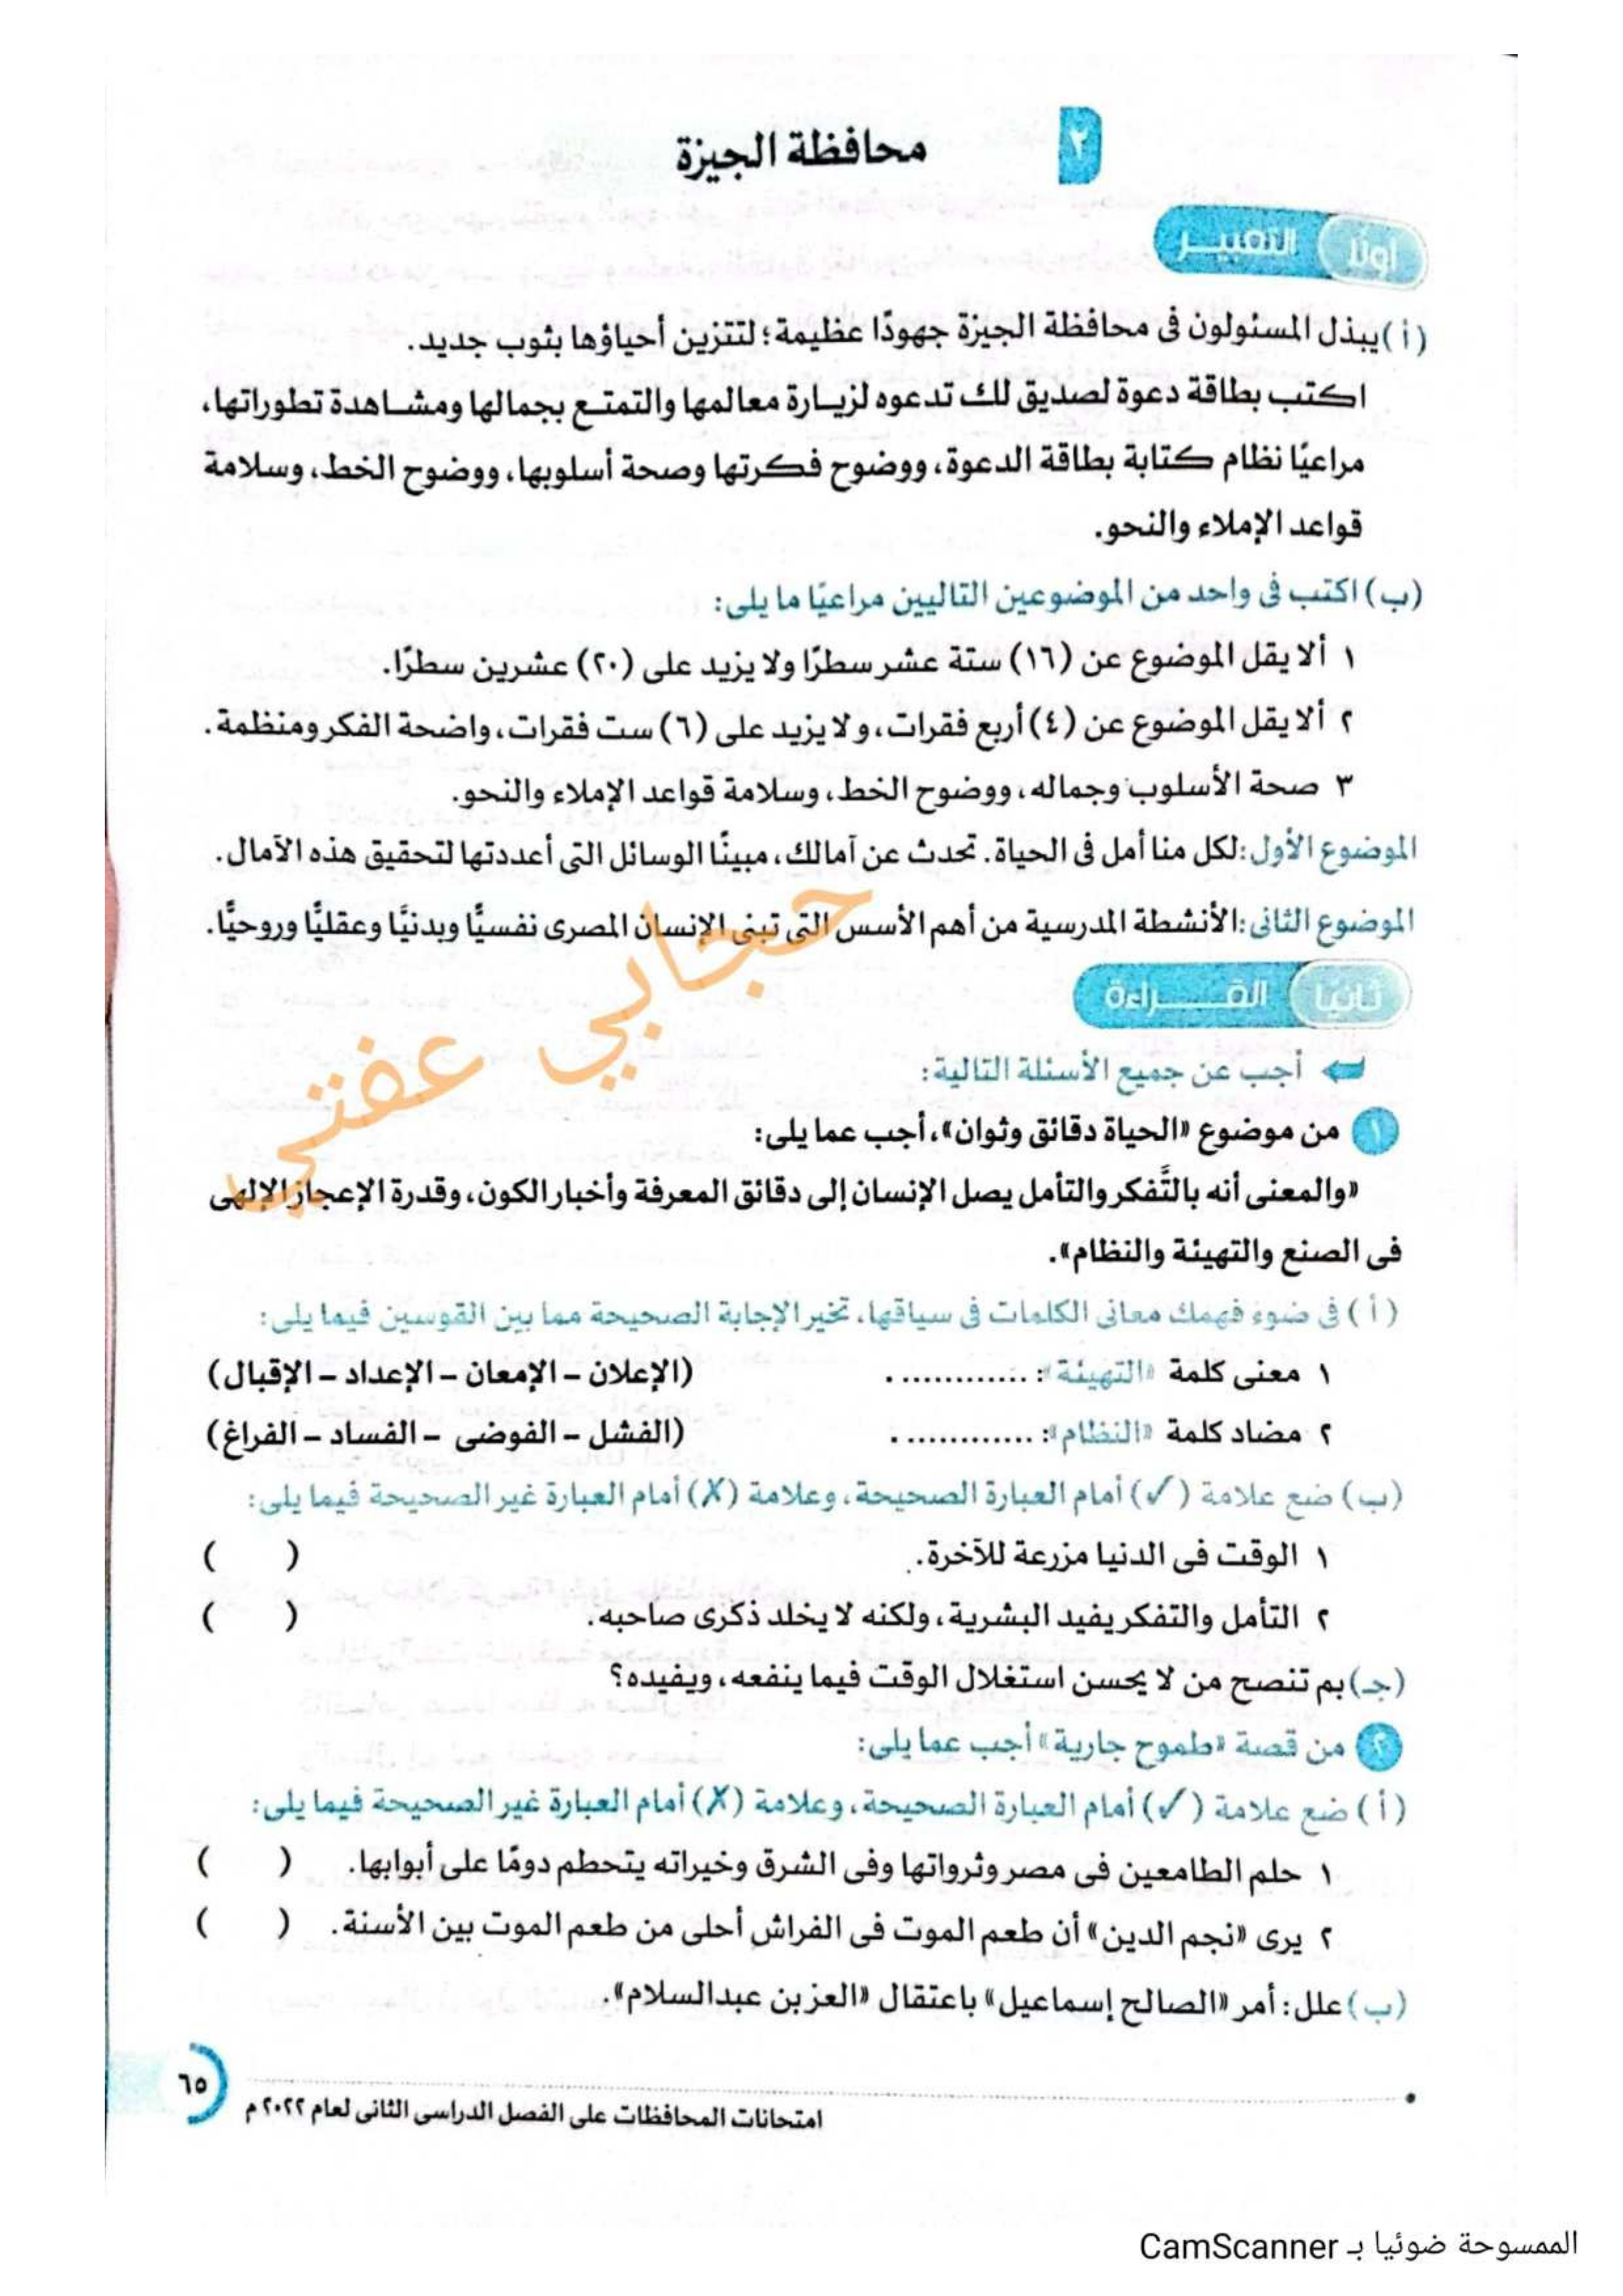 ٢
محافظة الجيزة
أولا التعبير
(أ) يبذل المسئولون فى محافظة الجيزة جهودًا عظيمة؛ لتتزين أحياؤها بثوب جديد.
اكتب بطاقة دعوة لصديق لك تدعوه لزيارة معالمها والتمتع بجمالها ومشاهدة تطوراتها،
مراعيًا نظام كتابة بطاقة الدعوة، ووضوح فكرتها وصحة أسلوبها، ووضوح الخط، وسلامة
قواعد الإملاء والنحو.
(ب) اكتب فى واحد من الموضوعين التاليين مراعيًا ما يلى:
١ ألا يقل الموضوع عن (١٦) ستة عشر سطرًا ولا يزيد على (٢٠) عشرين سطرًا.
٢ ألا يقل الموضوع عن (٤) أربع فقرات، ولا يزيد على (٦) ست فقرات، واضحة الفكر ومنظمة.
٣ صحة الأسلوب وجماله، ووضوح الخط، وسلامة قواعد الإملاء والنحو.
الموضوع الأول: لكل منا أمل فى الحياة. تحدث عن آمالك، مبينًا الوسائل التى أعددتها لتحقيق هذه الآمال.
الموضوع الثانى: الأنشطة المدرسية من أهم الأسس التى تبنى الإنسان المصرى نفسيًّا وبدنيًّا وعقليًّا وروحيًّا.
حجابي عفتي
ثانيا القـــراءة
أجب عن جميع الأسئلة التالية:
١ من موضوع «الحياة دقائق وثوان»، أجب عما يلى:
«والمعنى أنه بالتَّفكر والتأمل يصل الإنسان إلى دقائق المعرفة وأخبار الكون، وقدرة الإعجاز الإلهى
فى الصنع والتهيئة والنظام».
(أ) فى ضوء فهمك معانى الكلمات فى سياقها، تخير الإجابة الصحيحة مما بين القوسين فيما يلى:
١ معنى كلمة «التهيئة»: ............ . (الإعلان – الإمعان – الإعداد – الإقبال)
٢ مضاد كلمة «النظام»: ............ . (الفشل – الفوضى – الفساد – الفراغ)
(ب) ضع علامة (✓) أمام العبارة الصحيحة، وعلامة (✗) أمام العبارة غير الصحيحة فيما يلى:
١ الوقت فى الدنيا مزرعة للآخرة. ( )
٢ التأمل والتفكر يفيد البشرية، ولكنه لا يخلد ذكرى صاحبه. ( )
(جـ) بم تنصح من لا يحسن استغلال الوقت فيما ينفعه، ويفيده؟
٢ من قصة «طموح جارية» أجب عما يلى:
(أ) ضع علامة (✓) أمام العبارة الصحيحة، وعلامة (✗) أمام العبارة غير الصحيحة فيما يلى:
١ حلم الطامعين فى مصر وثرواتها وفى الشرق وخيراته يتحطم دومًا على أبوابها. ( )
٢ يرى «نجم الدين» أن طعم الموت فى الفراش أحلى من طعم الموت بين الأسنة. ( )
(ب) علل: أمر «الصالح إسماعيل» باعتقال «العز بن عبدالسلام».
٦٥
امتحانات المحافظات على الفصل الدراسى الثانى لعام ٢٠٢٢م
الممسوحة ضوئيا بـ CamScanner